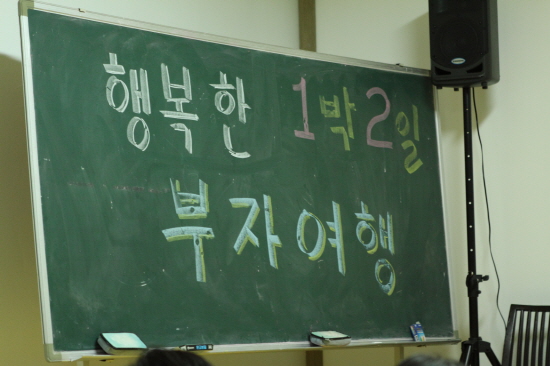 행복한 1박2일
부자여행